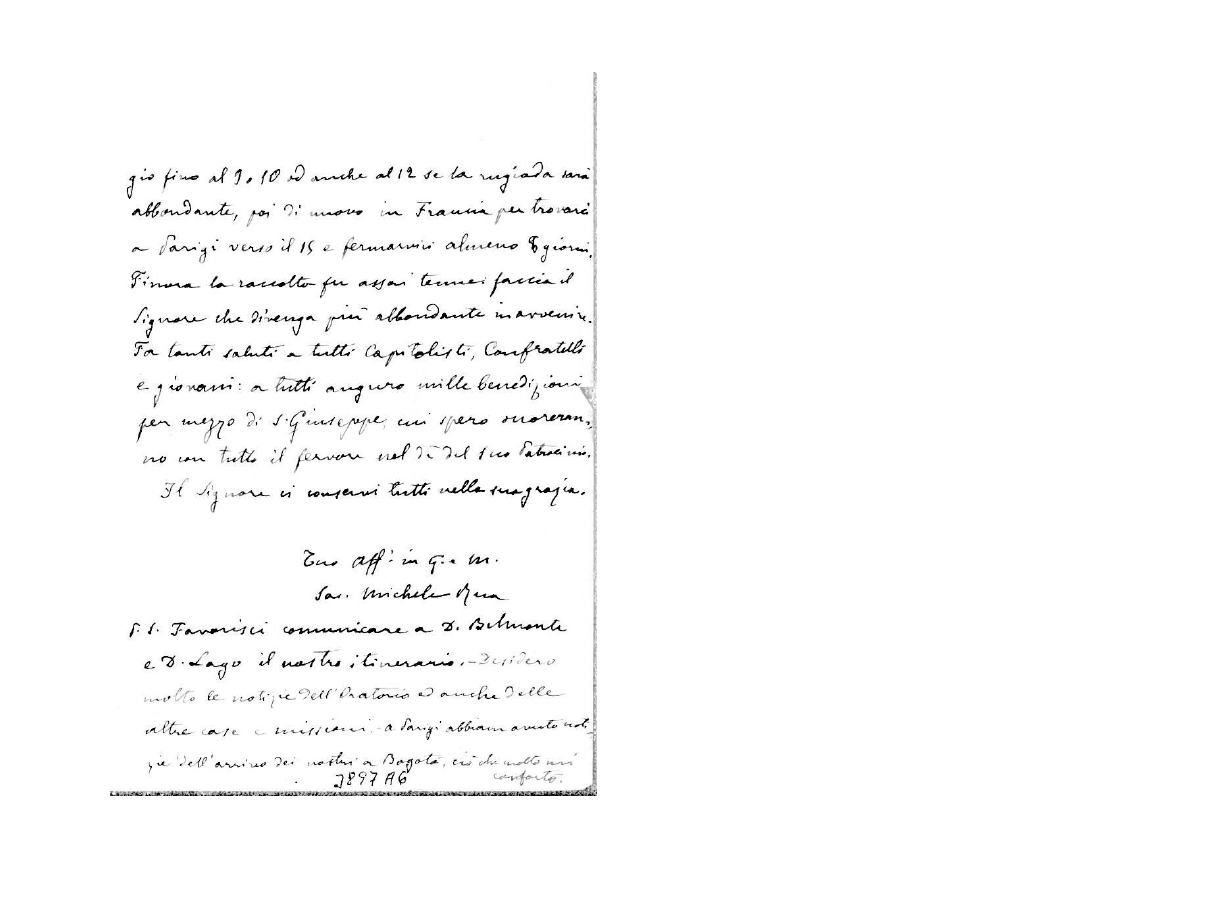 gio fino al 9 o 10 ed anche al 12 se la rugiada sarà
abbondante, poi di nuovo in Francia per trovarci
a Parigi verso il 15 e fermarvici almeno 8 giorni.
Finora la raccolta fu assai tenue: faccia il
Signore che divenga più abbondante in avvenire.
Fa tanti saluti a tutti Capitolisti, Confratelli
e giovani: a tutti auguro mille benedizioni
per mezzo di S. Giuseppe, cui spero onoreran-
no con tutto il fervore nel dì del suo Patrocinio.
Il Signore ci conservi tutti nella sua grazia.
Tuo aff.o in G. e M.
Sac. Michele Rua
P.S. Favorisci comunicare a D. Belmonte
e D. Lago il nostro itinerario. - Desidero
molto le notizie dell'Oratorio ed anche delle
altre case e missioni. - a Parigi abbiam avuto noti-
zie dell'arrivo dei nostri a Bogota, ciò che molto mi
conforta.
3897 A6